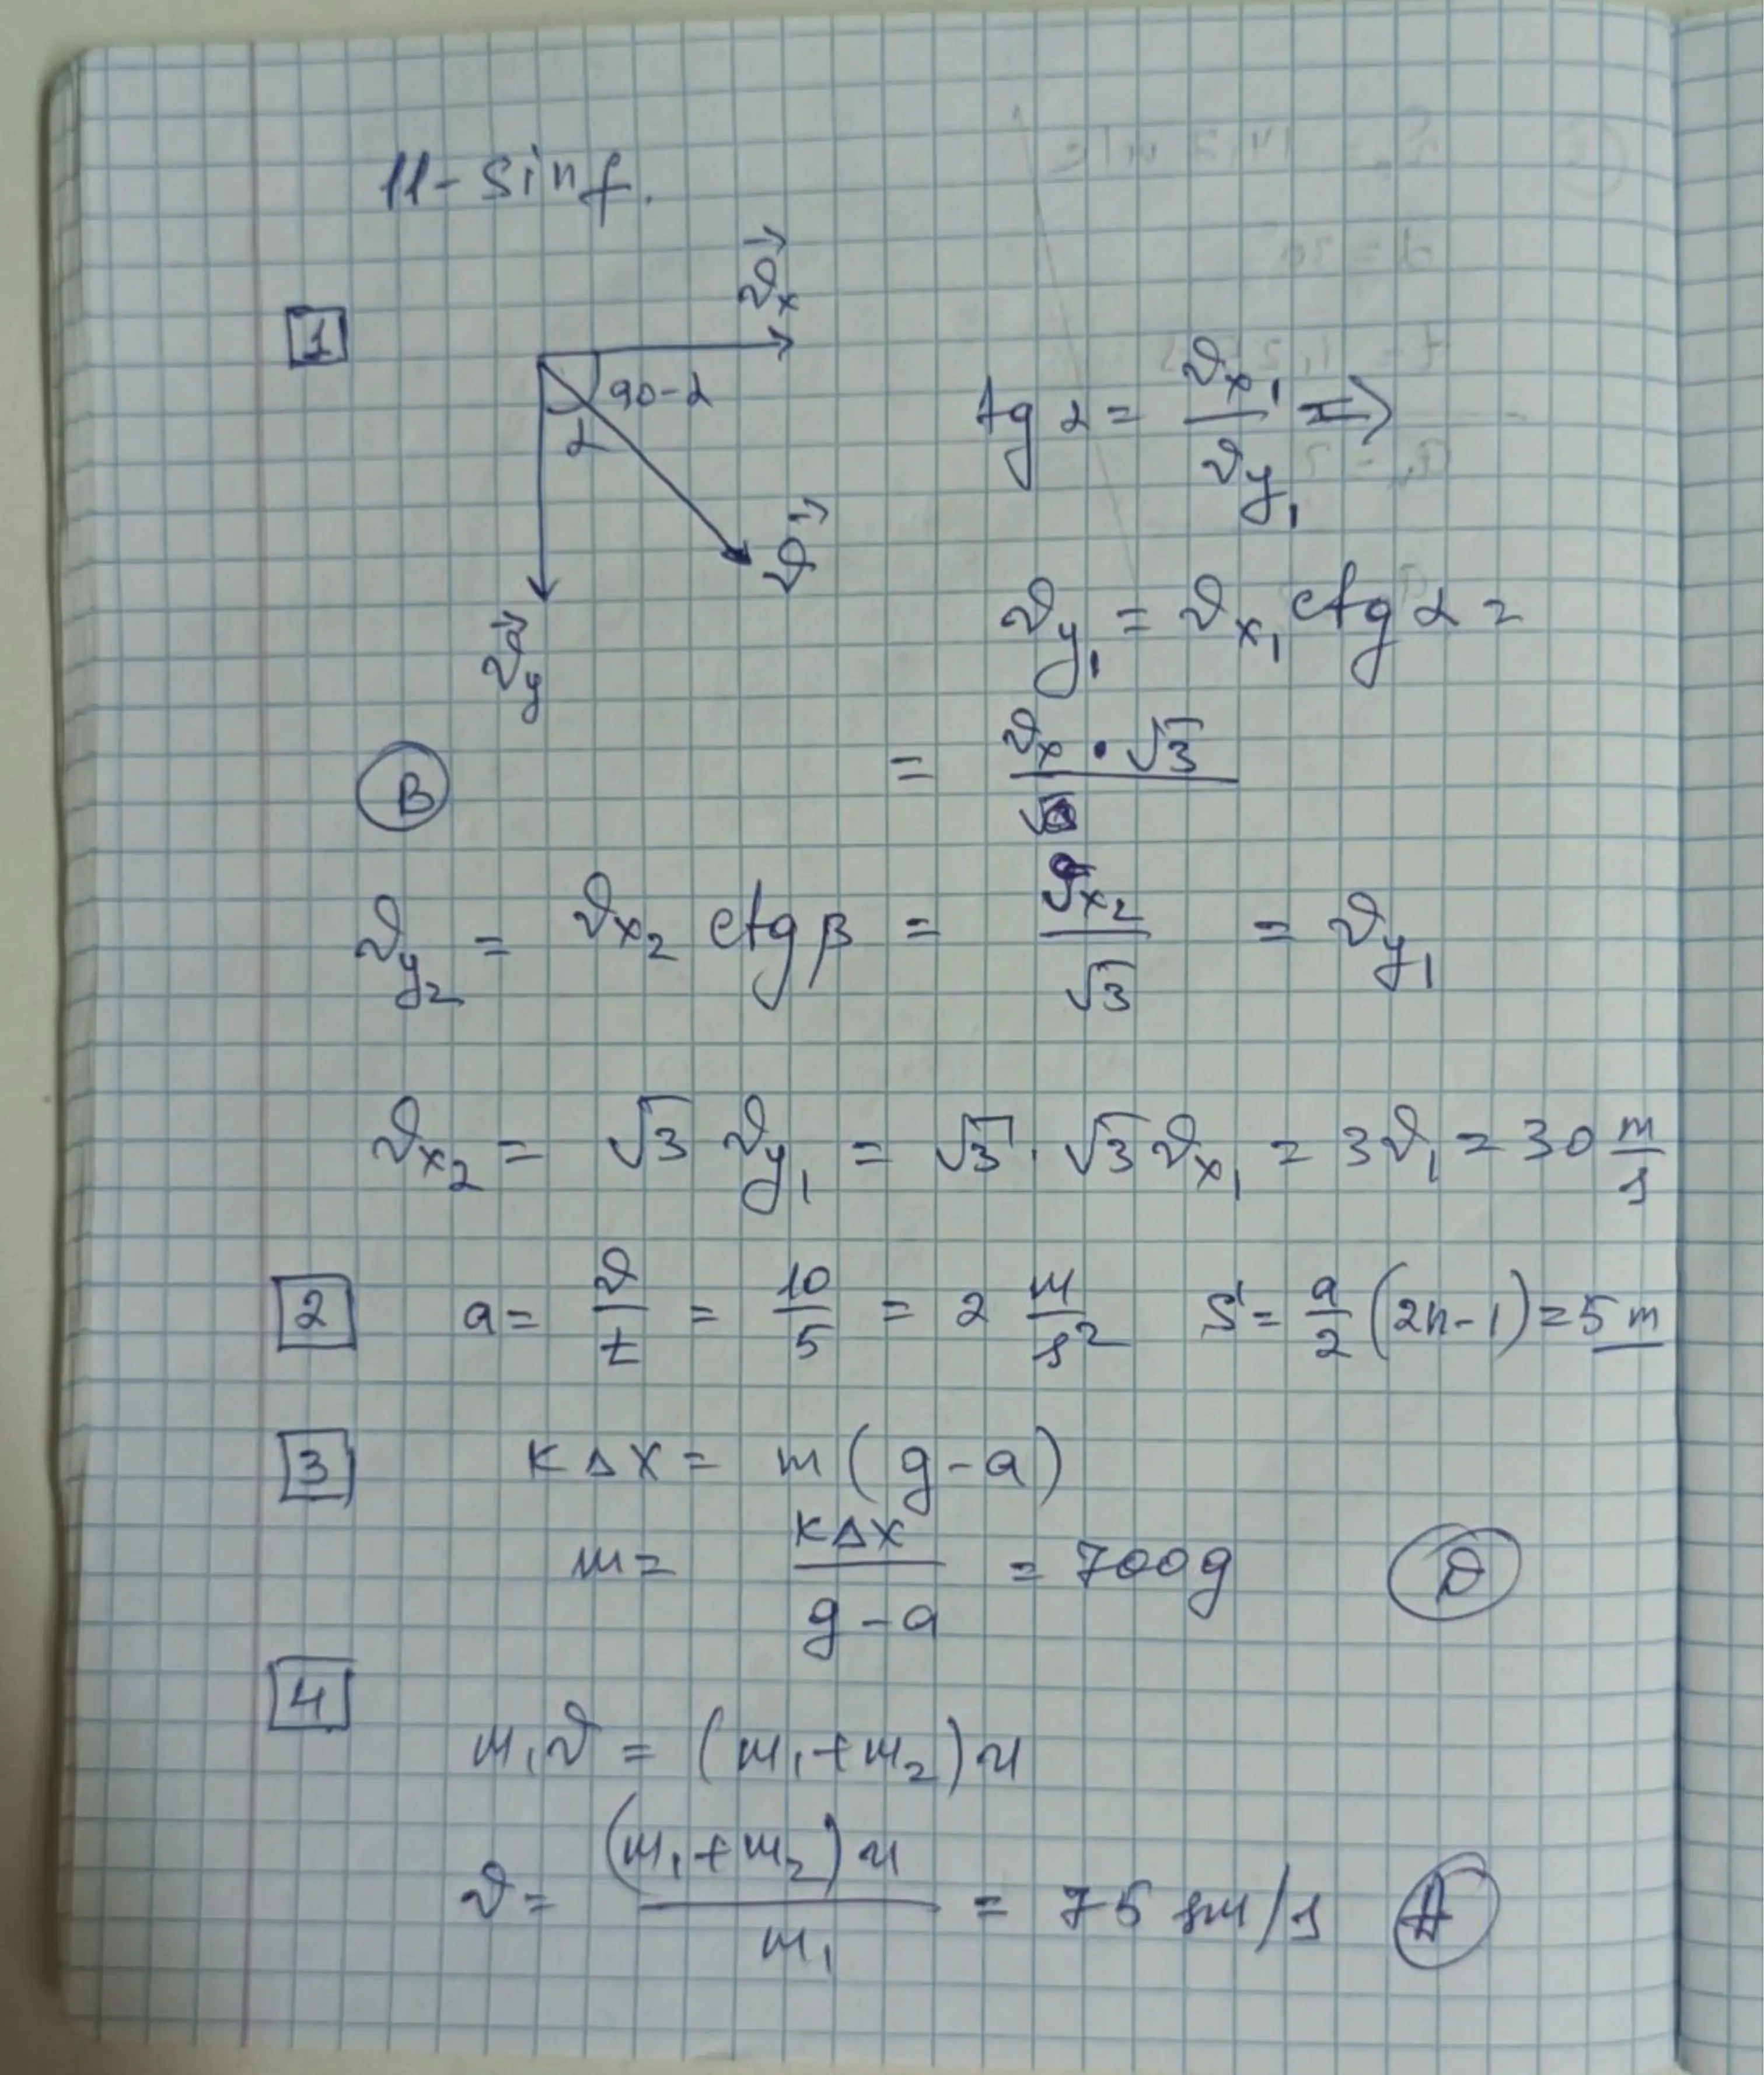 11-sinf.
1
ϑₓ→
90-α
α
ϑ→
ϑy→
tg α = ϑx₁ / ϑy₁ ⇒
ϑy₁ = ϑx₁ ctg α =
B
= ϑx · √3 /
ϑy₂ = ϑx₂ ctg β = ϑx₂ / √3 = ϑy₁
ϑx₂ = √3 ϑy₁ = √3 · √3 ϑx₁ = 3ϑ₁ = 30 m/s
2 a = ϑ/t = 10/5 = 2 m/s² S = a/2 (2n-1) = 5 m
3 kΔx = m(g-a)
m = kΔx / g-a = 700g D
4
m₁ϑ = (m₁+m₂)u
ϑ = (m₁+m₂)u / m₁ = 75 sm/s A